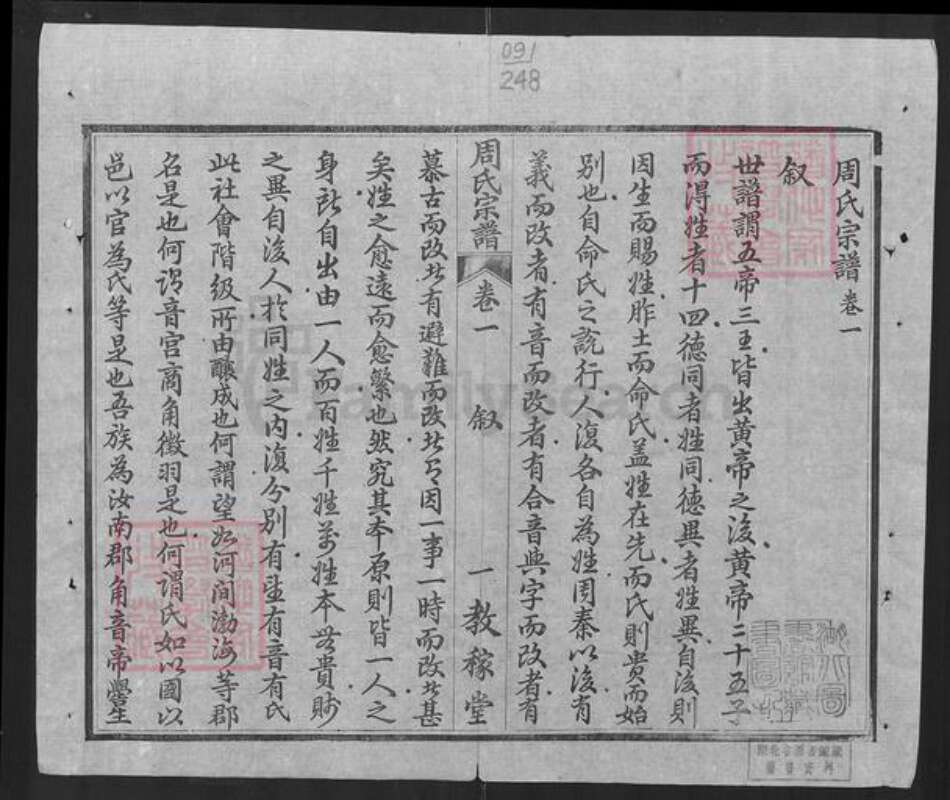 091
248
周氏宗譜 卷一
叙
世譜謂五帝三王皆出黃帝之後黃帝二十五子
而得姓者十四德同者姓同德異者姓異自後則
因生而賜姓胙土而命氏盖姓在先而氏則貴而始
別也自命氏之說行人復各自為姓周秦以後有
義而改者有音而改者有合音與字而改者有
周氏宗譜 卷一 叙 一 教稼堂
慕古而改者有避難而改者又因一事一時而改者甚
矣姓之愈遠而愈繁也然究其本原則皆一人之
身所自出由一人而百姓千姓萬姓本無貴賤
之異自後人於同姓之內復分別有望有音有氏
此社會階級所由釀成也何謂望如河间渤海等郡
名是也何謂音宮商角徵羽是也何謂氏如以國以
邑以官為氏等是也吾族為汝南郡角音帝嚳生